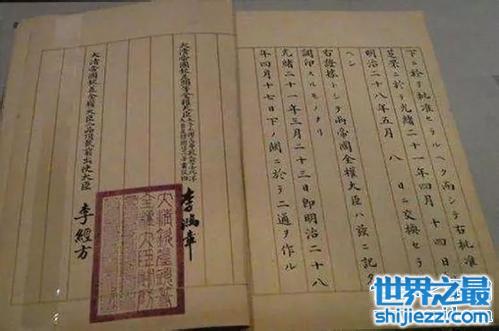 下ニ於テ批准セラルヘク而シテ右批准
芝罘ニ於テ光緒二十一年四月十四日
明治二十八年五月八日ニ交換セラ
ヘシ
右證據トシテ兩帝國全權大臣ハ茲ニ記名
調印スルモノナリ
光緒二十一年三月二十三日即明治二十八
年四月十七日下ノ關ニ於テ二通ヲ作ル
大清帝國欽差頭等全權大臣
李鴻章
大清帝國欽差全權大臣二品頂戴前出使大臣
李經方
世界之最
shijiezz.com